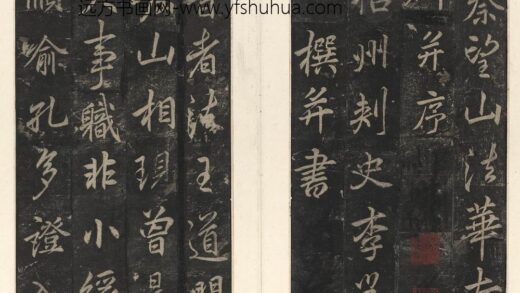 远方书画网-www.yfshuhua.com
秦望山法華寺
并序
州刺史李邕
撰并書
者法王道開
山相現曾是
事職非小緣
喻孔多證入